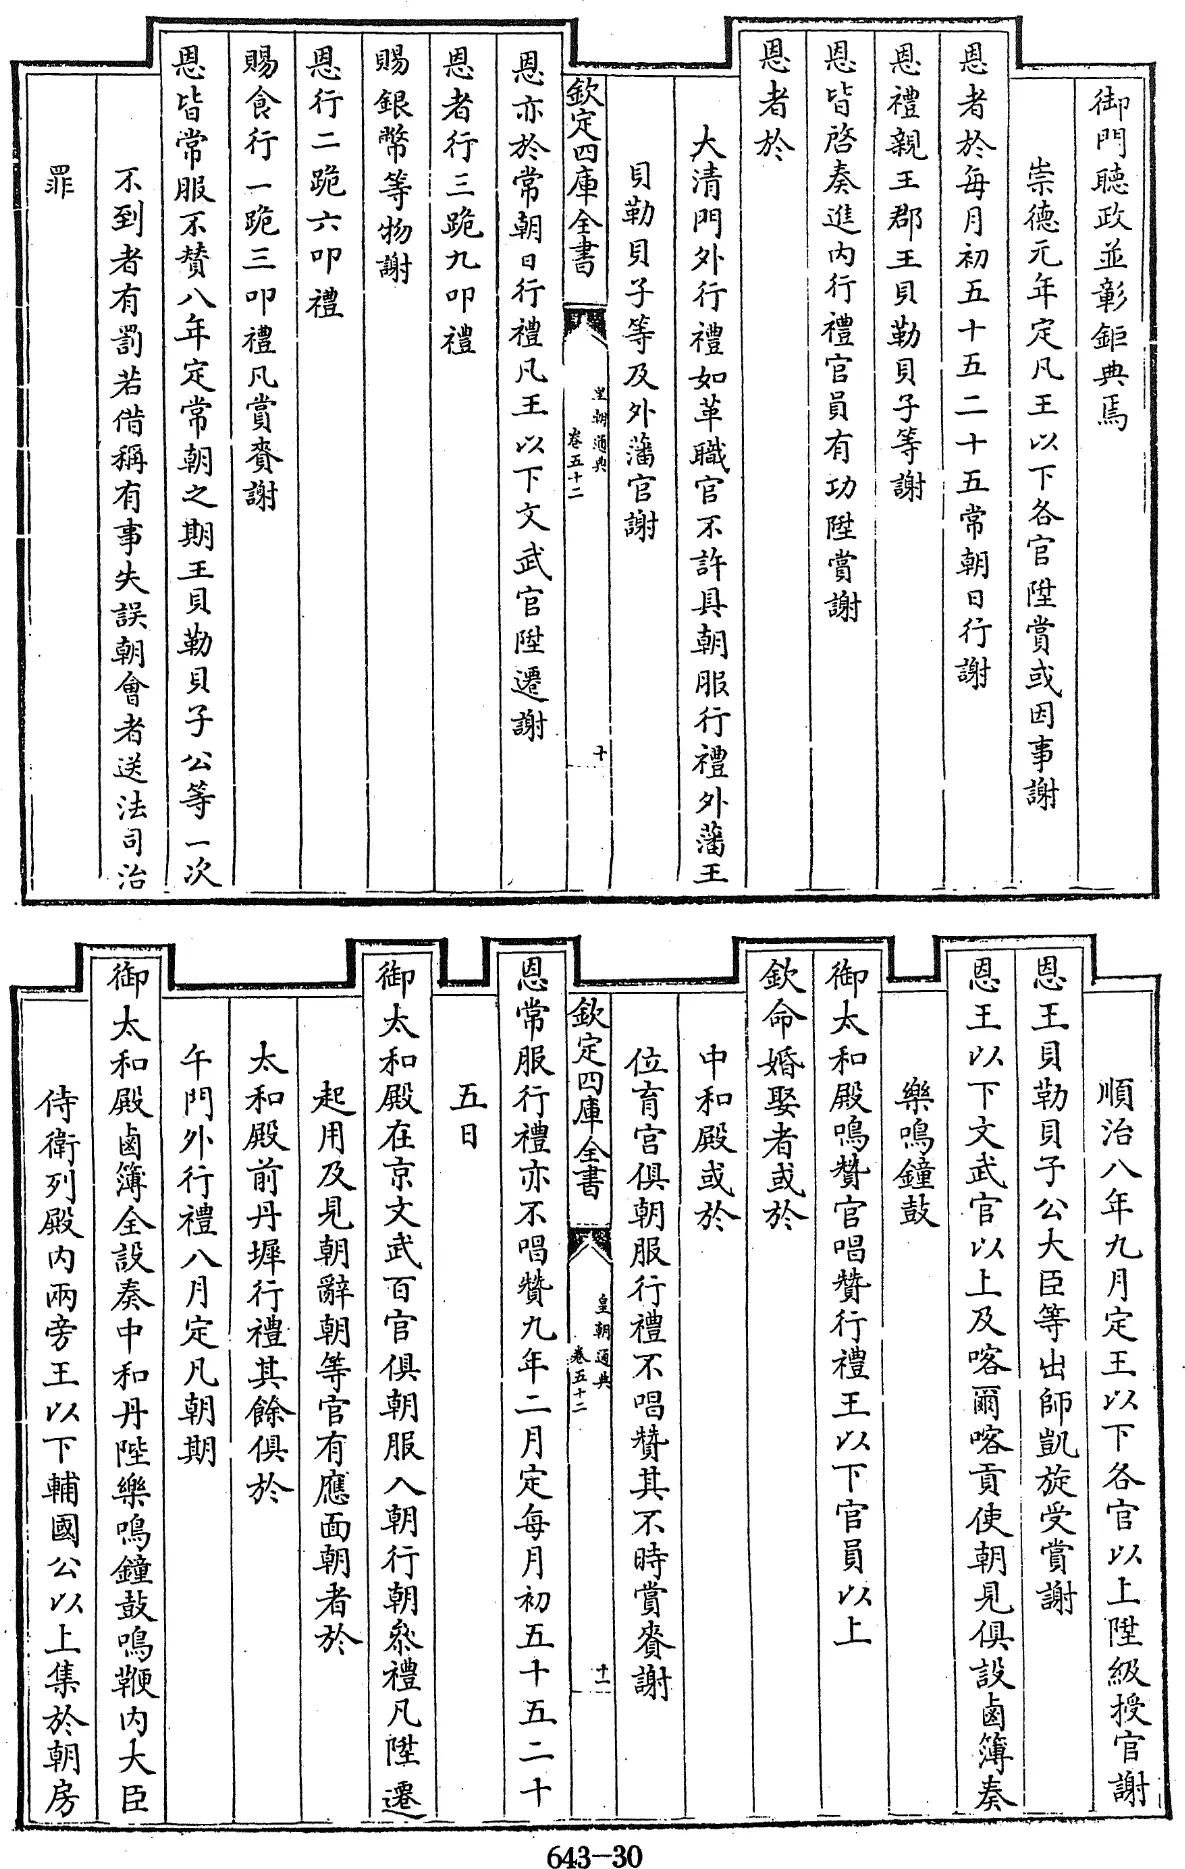 御門聽政並彰鉅典焉
崇德元年定凡王以下各官陞賞或因事謝
恩者於每月初五十五二十五常朝日行謝
恩禮親王郡王貝勒貝子等謝
恩皆啓奏進内行禮官員有功陞賞謝
恩者於
大清門外行禮如革職官不許具朝服行禮外藩王
貝勒貝子等及外藩官謝
欽定四庫全書
皇朝通典
卷五十二
十
恩亦於常朝日行禮凡王以下文武官陞遷謝
恩者行三跪九叩禮
賜銀幣等物謝
恩行二跪六叩禮
賜食行一跪三叩禮凡賞賚謝
恩皆常服不贊八年定常朝之期王貝勒貝子公等一次
不到者有罰若借稱有事失誤朝會者送法司治
罪
順治八年九月定王以下各官以上陞級授官謝
恩王貝勒貝子公大臣等出師凱旋受賞謝
恩王以下文武官以上及喀爾喀貢使朝見俱設鹵簿奏
樂鳴鐘鼓
御太和殿鳴贊官唱贊行禮王以下官員以上
欽命婚娶者或於
中和殿或於
位育宮俱朝服行禮不唱贊其不時賞賚謝
欽定四庫全書
皇朝通典
卷五十二
十一
恩常服行禮亦不唱贊九年二月定每月初五十五二十
五日
御太和殿在京文武百官俱朝服入朝行朝叅禮凡陞遷
起用及見朝辭朝等官有應面朝者於
太和殿前丹墀行禮其餘俱於
午門外行禮八月定凡朝期
御太和殿鹵簿全設奏中和丹陛樂鳴鐘鼓鳴鞭内大臣
侍衛列殿内兩旁王以下輔國公以上集於朝房
643-30